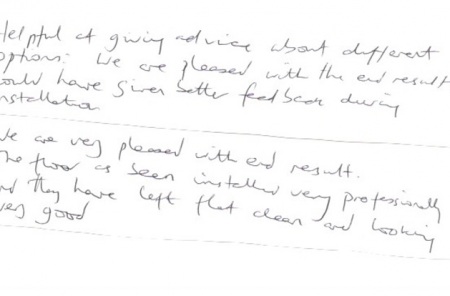 Helpful at giving advice about different
options. We are pleased with the end result
could have given better feedback during
installation
We are very pleased with end result.
The floor as been installed very professionally
and they have left flat clean and looking
very good